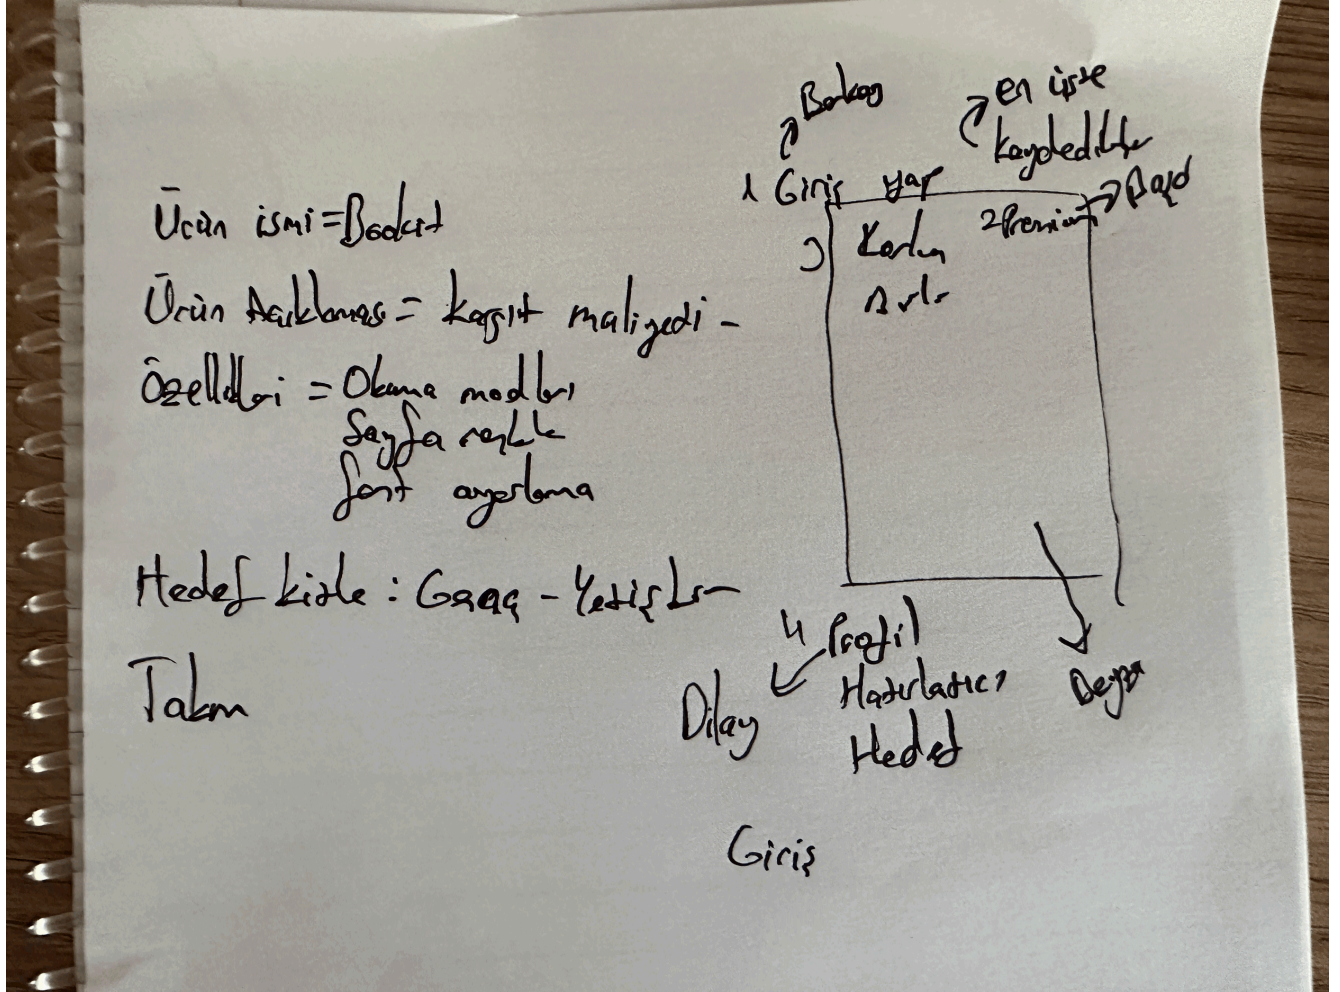 Ürün ismi =
Ürün Açıklaması = kağıt maliyedi -
Özellikleri = Okuma modları
Sayfa
font ayarlama
Hedef kitle : Genç - Yetişkin
Takım
Berkay
en üste
kaydedilenler
1 Giriş yap
2 Premium
3
4 Profil
Hatırlatıcı
Hedef
Dilay
Beyza
Giriş